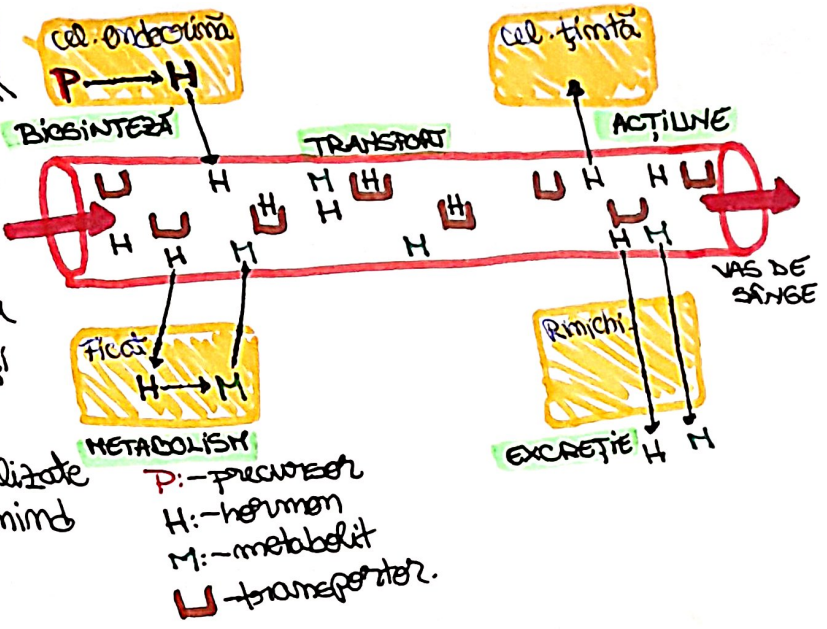 cel. endocrină
P → H
BIOSINTEZĂ
cel. țintă
ACȚIUNE
TRANSPORT
H M H H H
H
H H M M H M
VAS DE
SÂNGE
Ficat
H → M
METABOLISM
Rinichi
EXCREȚIE H M
P:-precursor
H:-hormon
M:-metabolit
-transportor.